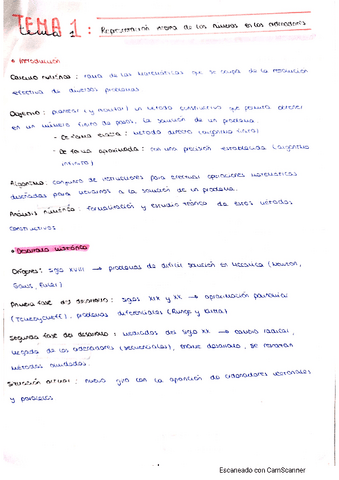 TEMA 1: Representación interna de los números en los ordenadores
• Introducción
Cálculo numérico: rama de las matemáticas que se ocupa de la resolución
efectiva de diversos problemas
Objetivo: plantear (y analizar) un método constructivo que permita obtener
en un número finito de pasos, la solución de un problema.
- De forma exacta: método directo (algoritmo finito)
- De forma aproximada: con una precisión establecida (algoritmo
infinito)
Algoritmo: conjunto de instrucciones para efectuar operaciones matemáticas
diseñadas para llevarnos a la solución de un problema.
Análisis numérico: formalización y estudio teórico de estos métodos
constructivos
• Desarrollo histórico
Orígenes: siglo XVIII → problemas de difícil solución en Mecánica (Newton,
Gauss, Euler)
Primera fase del desarrollo: siglos XIX y XX → aproximación polinomial
(Tchebycheff), problemas diferenciales (Runge y Kutta)
Segunda fase de desarrollo: mediados del siglo XX → cambio radical,
llegada de los ordenadores (secuenciales), enorme desarrollo, se retoman
métodos olvidados.
Situación actual: nuevo giro con la aparición de ordenadores vectoriales
y paralelos
Escaneado con CamScanner